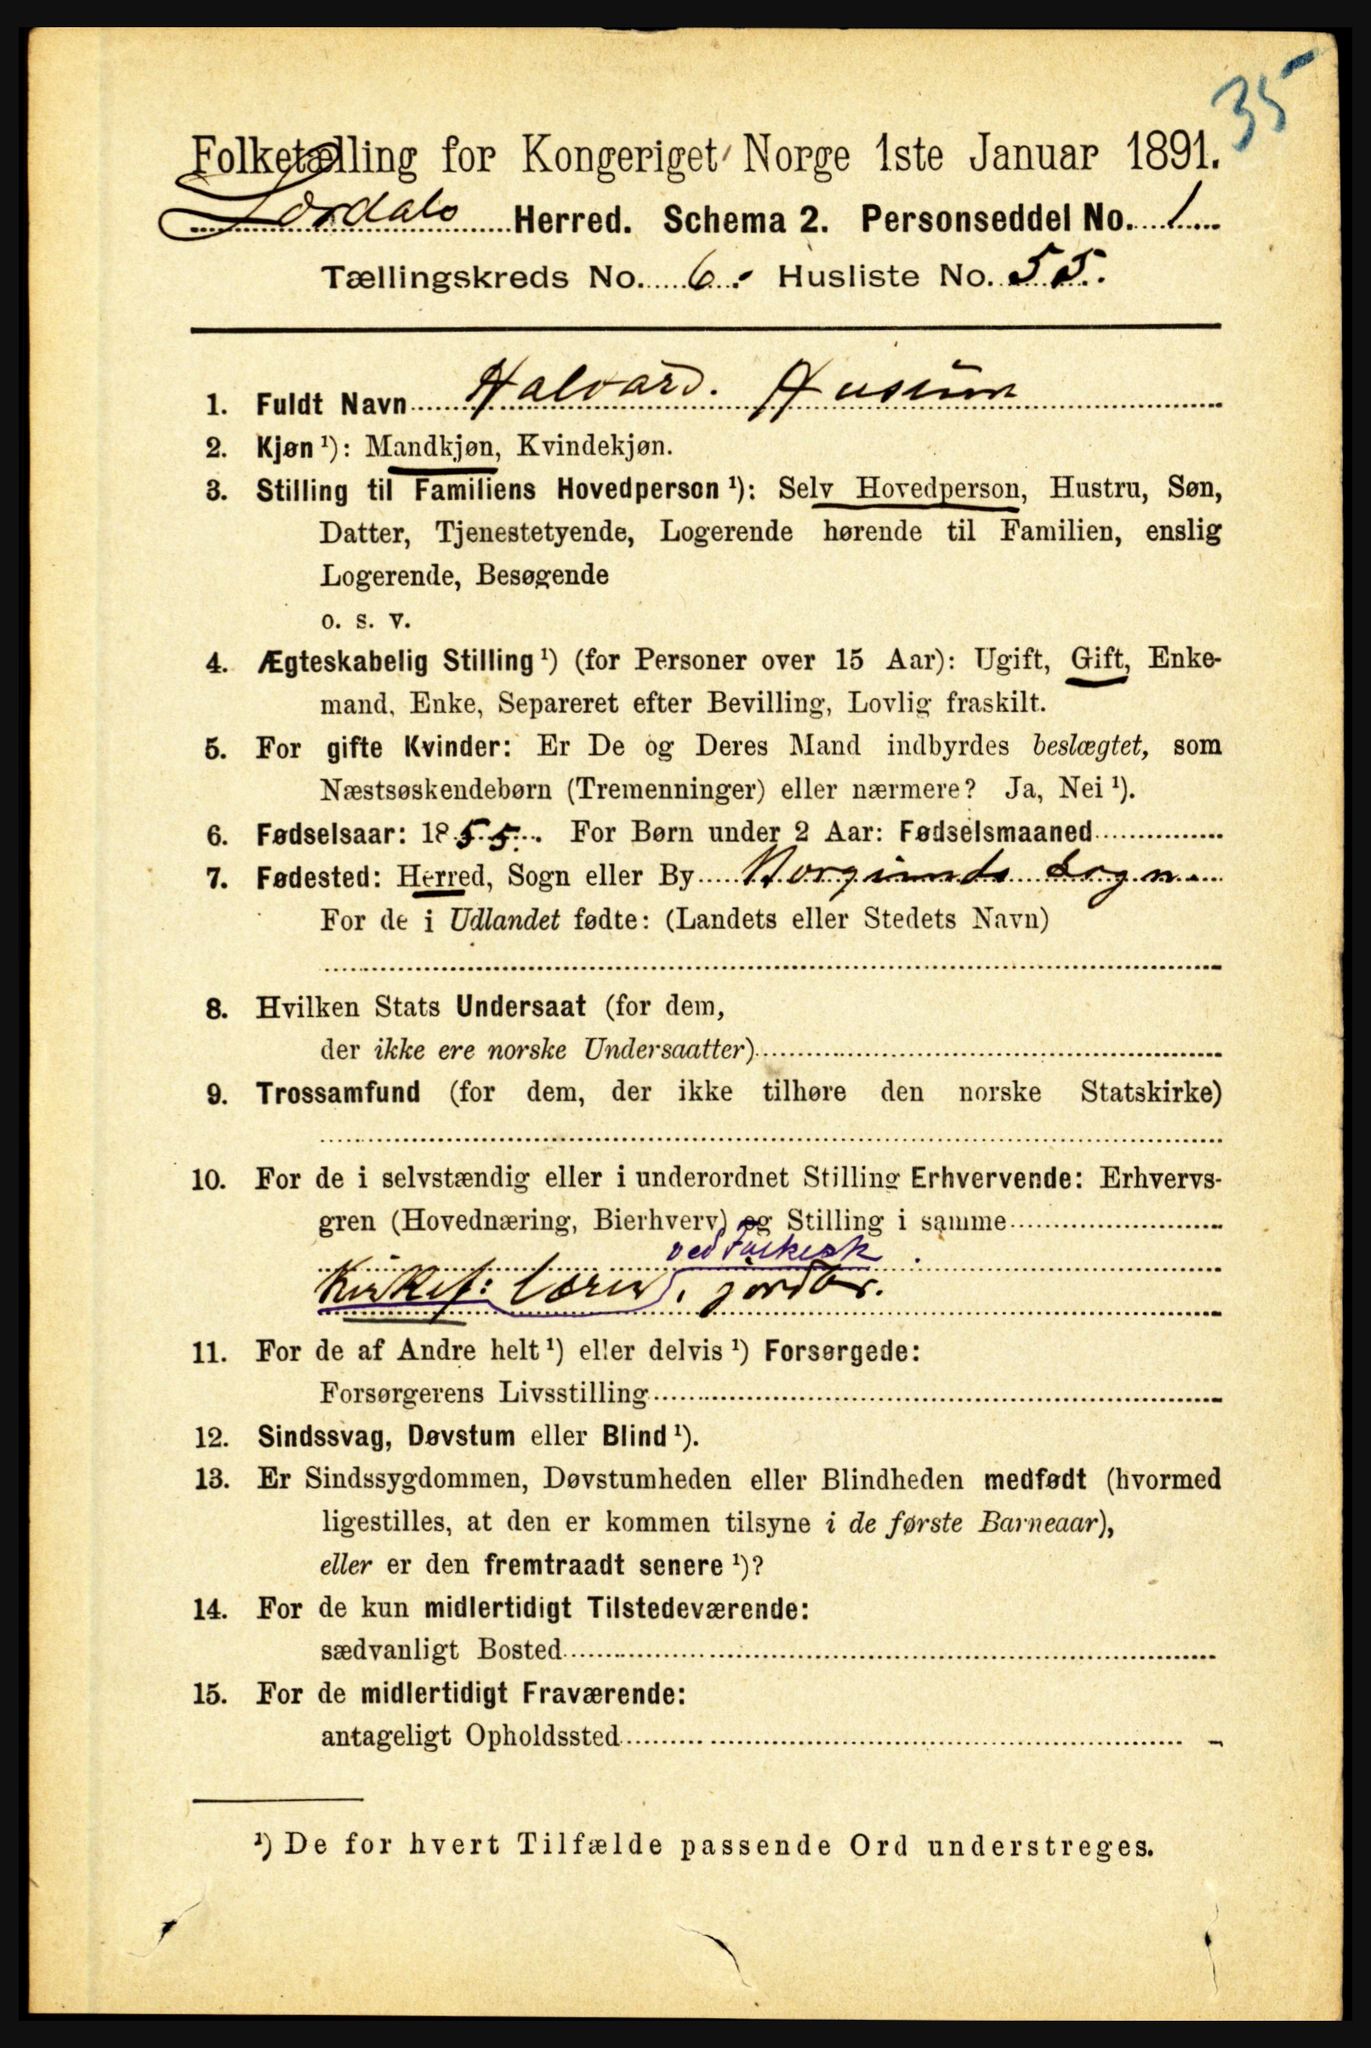 35
Folketælling for Kongeriget Norge 1ste Januar 1891.
Herred. Schema 2. Personseddel No. 1
Tællingskreds No. 6. Husliste No. 55.
1. Fuldt Navn Halvard. Husum
2. Kjøn ¹): Mandkjøn, Kvindekjøn.
3. Stilling til Familiens Hovedperson ¹): Selv Hovedperson, Hustru, Søn,
Datter, Tjenestetyende, Logerende hørende til Familien, enslig
Logerende, Besøgende
o. s. v.
4. Ægteskabelig Stilling ¹) (for Personer over 15 Aar): Ugift, Gift, Enke-
mand, Enke, Separeret efter Bevilling, Lovlig fraskilt.
5. For gifte Kvinder: Er De og Deres Mand indbyrdes beslægtet, som
Næstsøskendebørn (Tremenninger) eller nærmere? Ja, Nei ¹).
6. Fødselsaar: 1855. For Børn under 2 Aar: Fødselsmaaned
7. Fødested: Herred, Sogn eller By Borgunds Sogn
For de i Udlandet fødte: (Landets eller Stedets Navn)
8. Hvilken Stats Undersaat (for dem,
der ikke ere norske Undersaatter)
9. Trossamfund (for dem, der ikke tilhøre den norske Statskirke)
10. For de i selvstændig eller i underordnet Stilling Erhvervende: Erhvervs-
gren (Hovednæring, Bierhverv) og Stilling i samme
ved Folkesk
Kirkes: Lærer, jordbr.
11. For de af Andre helt ¹) eller delvis ¹) Forsørgede:
Forsørgerens Livsstilling
12. Sindssvag, Døvstum eller Blind ¹).
13. Er Sindssygdommen, Døvstumheden eller Blindheden medfødt (hvormed
ligestilles, at den er kommen tilsyne i de første Barneaar),
eller er den fremtraadt senere ¹)?
14. For de kun midlertidigt Tilstedeværende:
sædvanligt Bosted
15. For de midlertidigt Fraværende:
antageligt Opholdssted
¹) De for hvert Tilfælde passende Ord understreges.